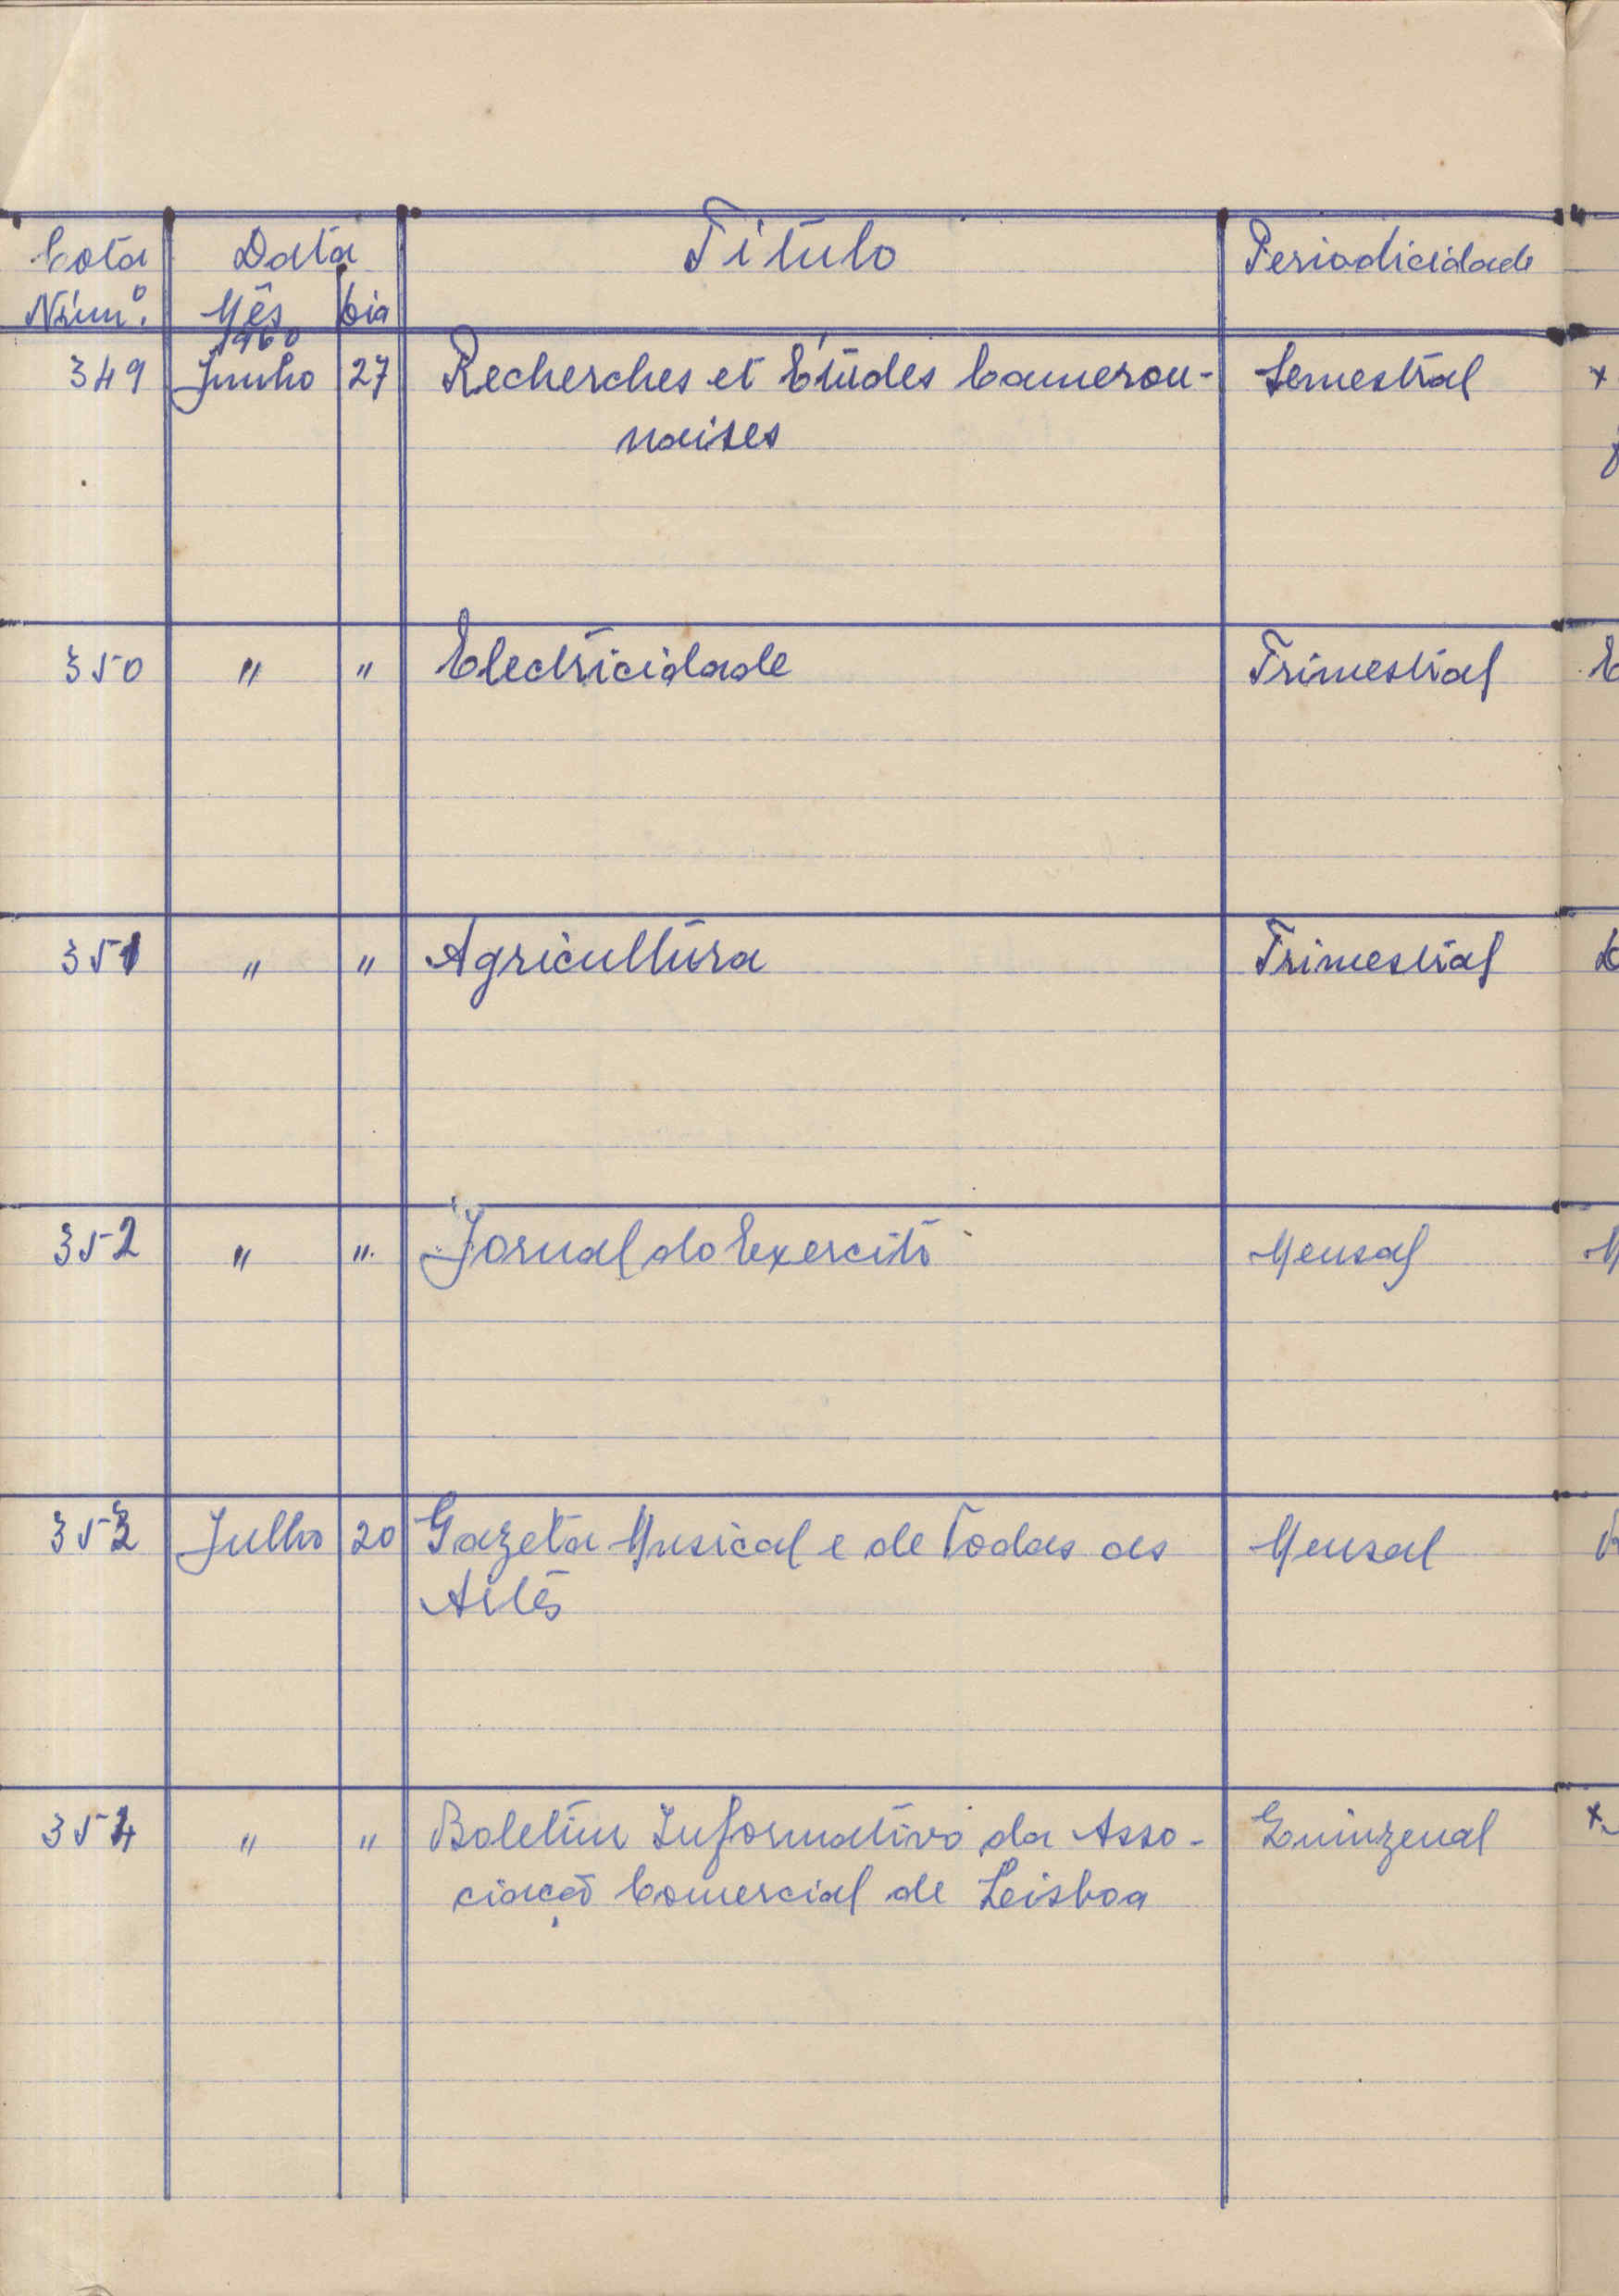 Cota Data Titulo Periodicidade
Núm.º Mês Dia
1960
349 Junho 27 Recherches et Études Camerou- Semestral
naises
350 " " Electricidade Trimestral
351 " " Agricultura Trimestral
352 " " Jornal do Exercito Mensal
353 Julho 20 Gazeta Musical e de Todas as Mensal
Artes
354 " " Boletim Informativo da Asso- Quinzenal
ciação Comercial de Lisboa